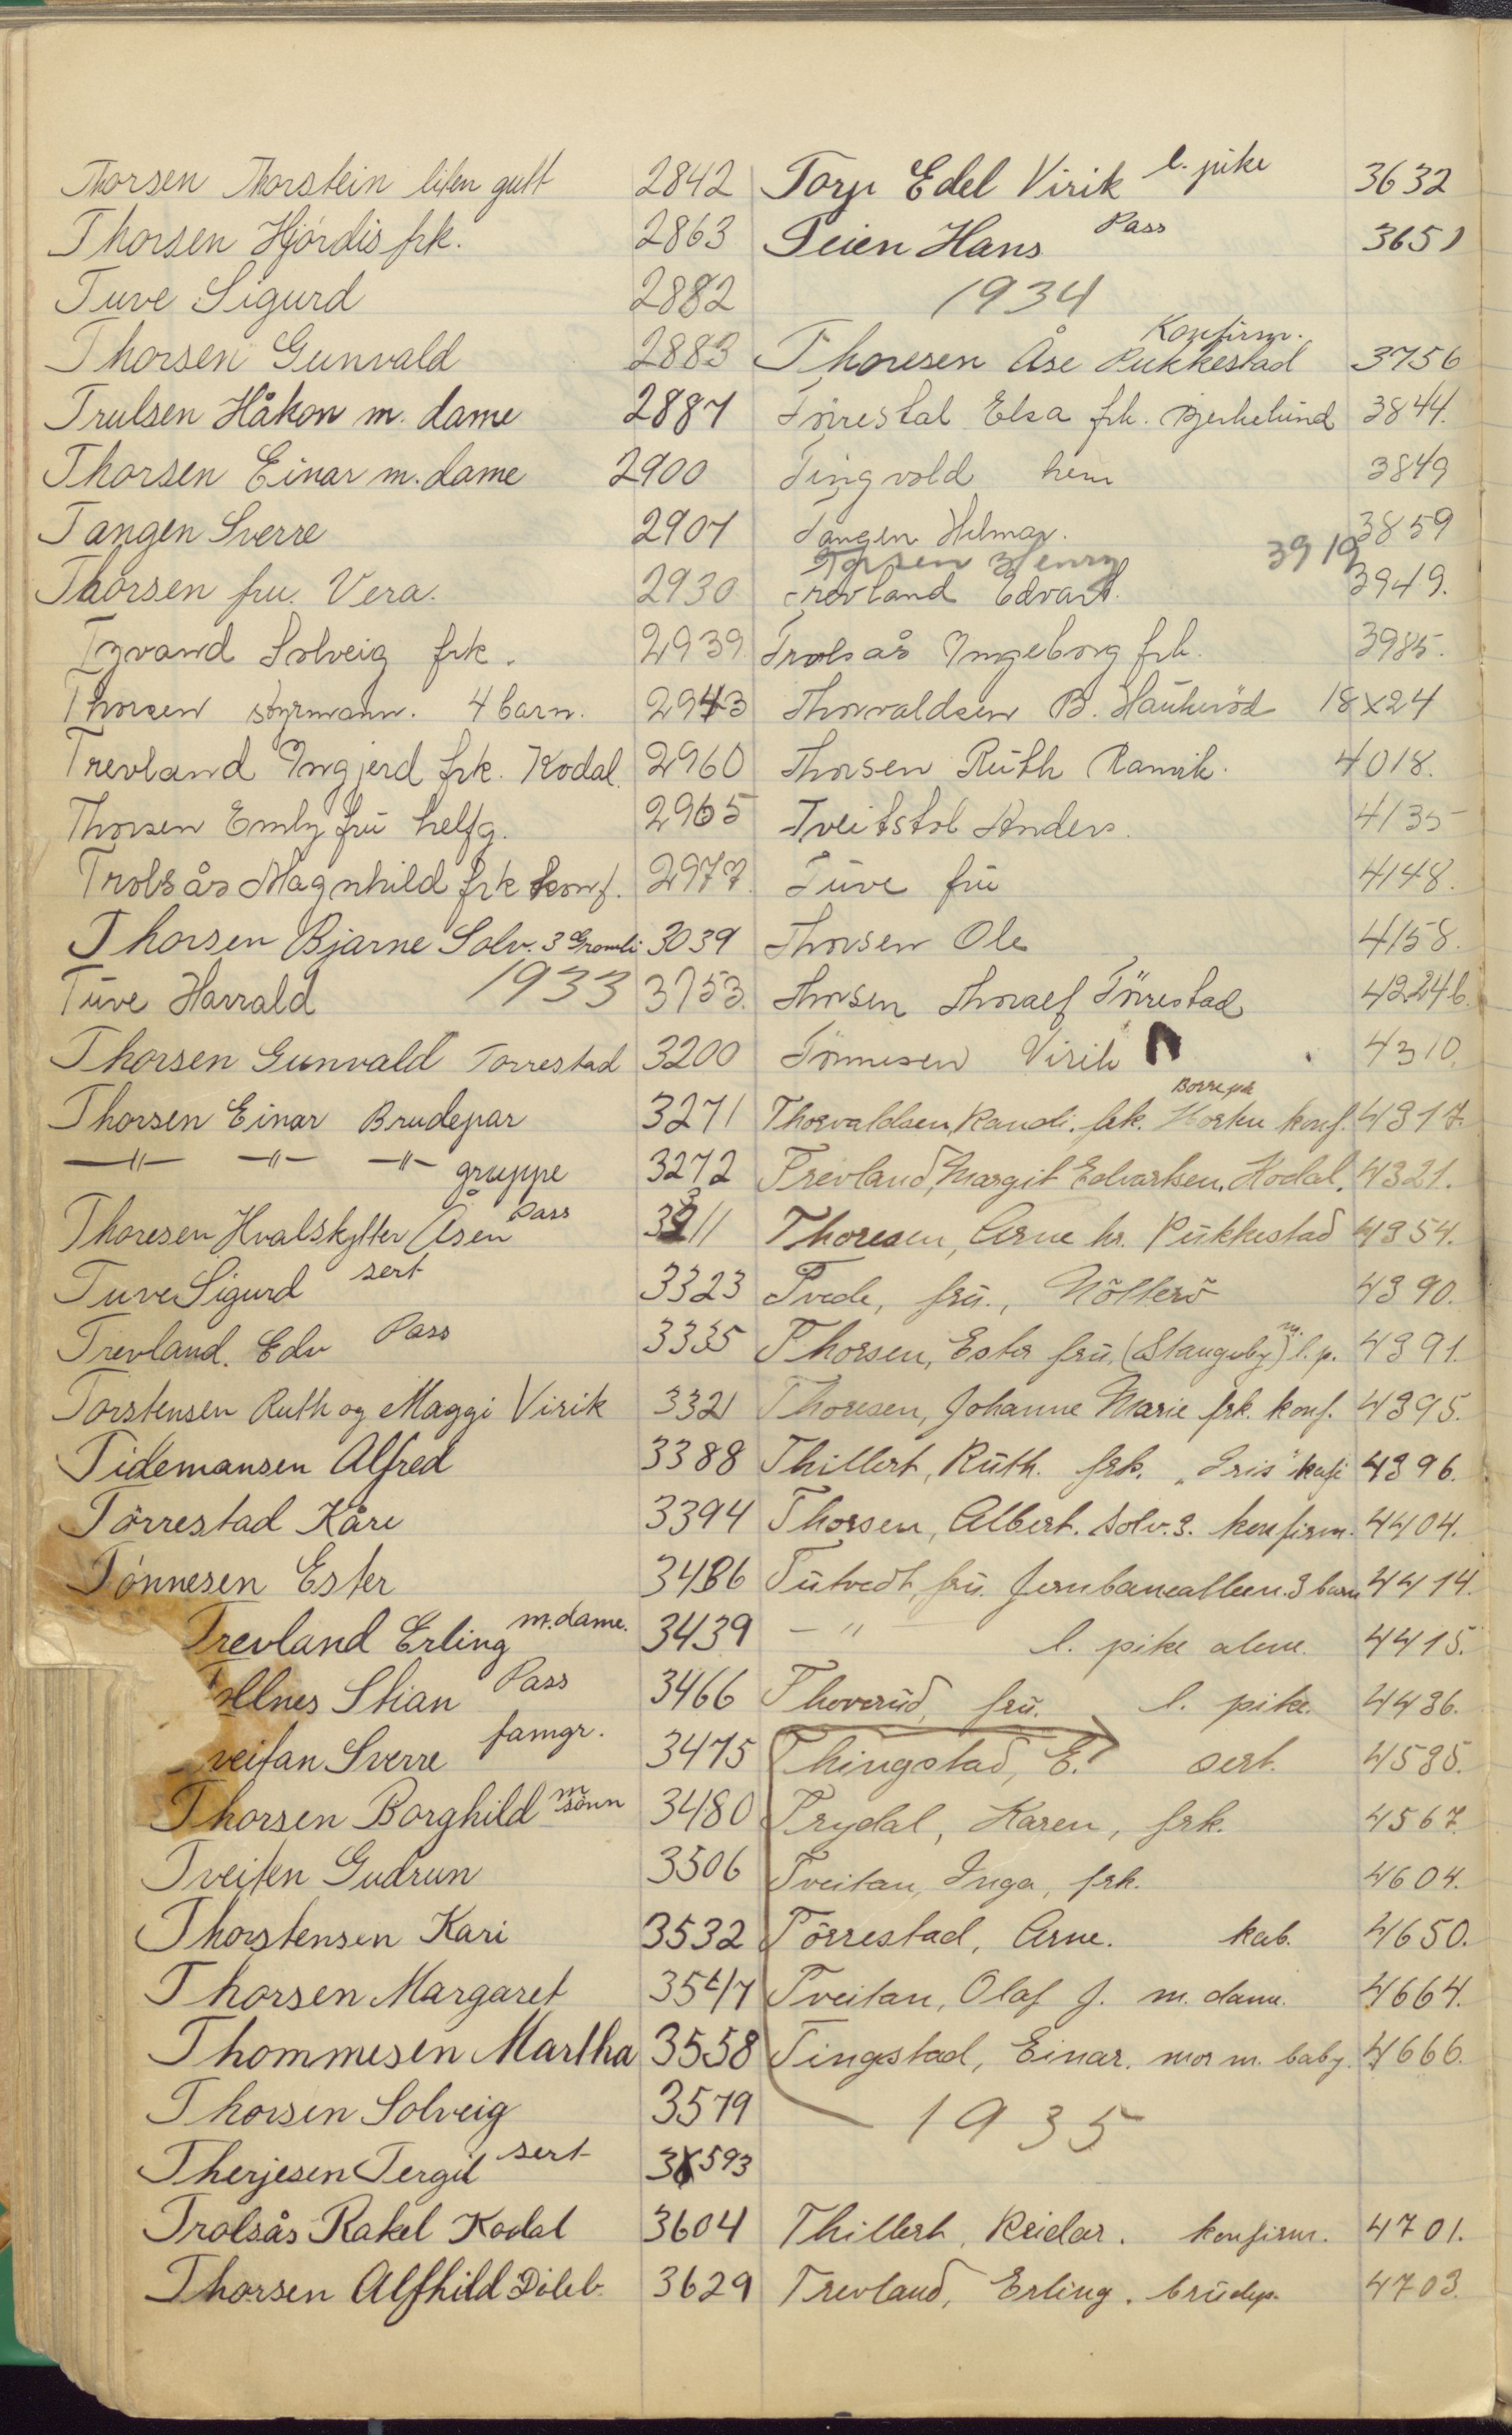 Thorsen Thorstein liten gutt 2842
Thorsen Hjördis frk. 2863
Tuve Sigurd 2882
Thorsen Gunvald 2883
Trulsen Håkon m. dame 2887
Thorsen Einar m. dame 2900
Tangen Sverre 2907
Thorsen fru. Vera. 2930
Tyvand Solveig frk. 2939
Thorsen styrmann. 4 barn. 2943
Trevland Ingjerd frk. Kodal. 2960
Thorsen Emly frü helfg. 2965
Trolsås Magnhild frk konf. 2977
Thorsen Bjarne Solv. 3 Gromli 3039
1933
Tüve Harrald 3153.
Thorsen Gunvald Torrestad 3200
Thorsen Einar Brudepar 3271
—"— —"— —"— gruppe 3272
Thoresen Hvalskytter Åsen Pass 3311
Tuve Sigurd sert 3323
Trevland. Edv Pass 3335
Torstensen Ruth og Maggi Virik 3321
Tidemansen Alfred 3388
Törrestad Kåre 3394
Tönnesen Ester 3436
Trevland Erling m. dame. 3439
ollnes Stian Pass 3466
veitan Sverre famgr. 3475
Thorsen Borghild m sönn 3480
Tveiten Gudrun 3506
Thorstensen Kari 3532
Thorsen Margaret 3547
Thommesen Martha 3558
Thorsen Solveig 3579
Therjesen Tergil sert 3593
Trolsås Rakel Kodal 3604
Thorsen Alfhild Döleb. 3629
Torp Edel Virik l. pike 3632
Teien Hans Pass 3651
1934
Konfirm.
Thoresen Åse Pukkestad 3756
Törrestal Elsa frk. Bjerkelund 3844.
Tingvold hem 3849
Tangen Hilmar. 3859
Torsen Henry 3919
Trevland Edvart. 3949.
Trolsås Ingeborg frk. 3985.
Thorvaldsen B. Haukeröd 18x24
Thorsen Rüth Ramvik. 4018.
Tveitstol Anders. 4135
Tüve frü 4148.
Thorsen Ole 4158.
Thorsen Thoralf Törrestad 4224b.
Tönnesen Virik 4310.
Borrepk
Thorvaldsen, Randi. frk. konf. 4317.
Trevland, Margit Edvartsen, Kodal. 4321.
Thoresen, Arne hr. Pükkestad 4354.
Tvede, frü., Nötterö 4390.
Thorsen, Ester frü, (Stangeby) m. l. p. 4391.
Thoresen, Johanne Marie frk. konf. 4395.
Thillert, Rüth. frk. "Iris" kafe 4396.
Thorsen, Albert. Solv. 3. konfirm. 4404.
Tütvedt, frü. Jernbanealleen. 3 barn 4414.
— " — l. pike alene. 4415.
Thoverüd, frü. l. pike. 4436.
Thingstad, E. sert. 4535.
Trydal, Karen, frk. 4567.
Tveitan, Inga, frk. 4604.
Törrestad, Arne. kab. 4650.
Tveitan, Olaf J. m. dame. 4664.
Tingstad, Einar. mor m. baby. 4666.
1935
Thillert, Reidar. konfirm. 4701.
Trevland, Erling. brüdep. 4703.